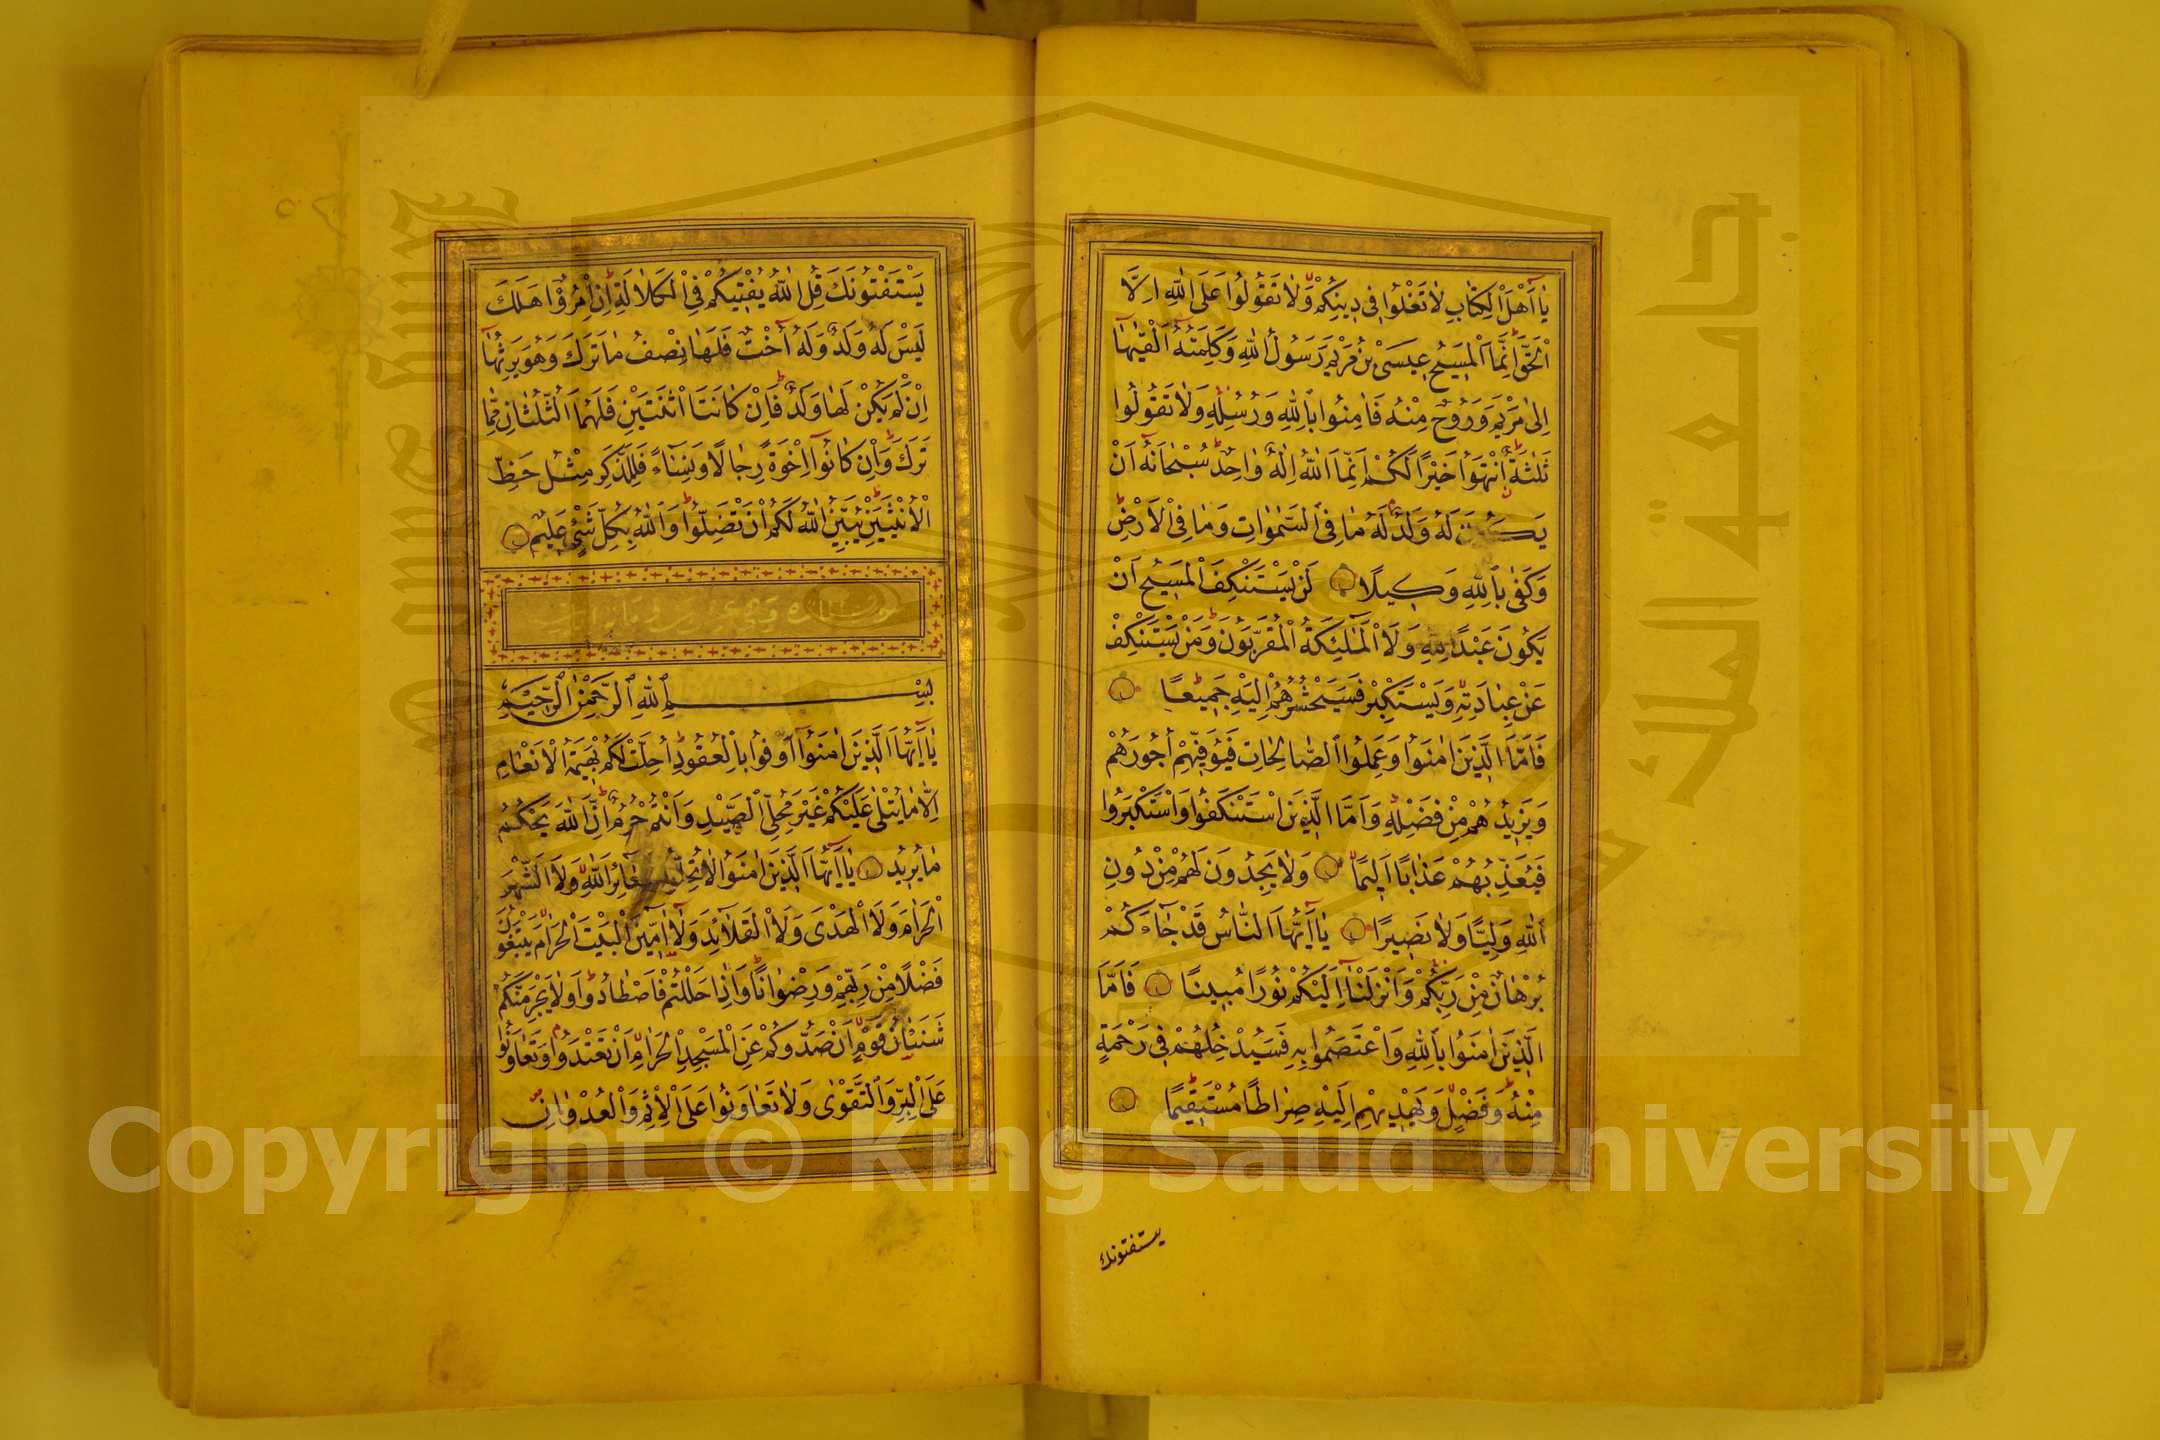 يَا أَهْلَ الْكِتَابِ لَا تَغْلُوا فِي دِينِكُمْ وَلَا تَقُولُوا عَلَى اللَّهِ إِلَّا
الْحَقَّ إِنَّمَا الْمَسِيحُ عِيسَى بْنُ مَرْيَمَ رَسُولُ اللَّهِ وَكَلِمَتُهُ أَلْقَيهَا
إِلَى مَرْيَمَ وَرُوحٌ مِنْهُ فَآمِنُوا بِاللَّهِ وَرُسُلِهِ وَلَا تَقُولُوا
ثَلَثَةٌ انْتَهُوا خَيْرًا لَكُمْ إِنَّمَا اللَّهُ إِلَهٌ وَاحِدٌ سُبْحَانَهُ أَنْ
يَكُونَ لَهُ وَلَدٌ لَهُ مَا فِي السَّمَوَاتِ وَمَا فِي الْأَرْضِ
وَكَفَى بِاللَّهِ وَكِيلًا لَنْ يَسْتَنْكِفَ الْمَسِيحُ أَنْ
يَكُونَ عَبْدًا لِلَّهِ وَلَا الْمَلَئِكَةُ الْمُقَرَّبُونَ وَمَنْ يَسْتَنْكِفْ
عَنْ عِبَادَتِهِ وَيَسْتَكْبِرْ فَسَيَحْشُرُهُمْ إِلَيْهِ جَمِيعًا
فَأَمَّا الَّذِينَ آمَنُوا وَعَمِلُوا الصَّالِحَاتِ فَيُوَفِّيهِمْ أُجُورَهُمْ
وَيَزِيدُهُمْ مِنْ فَضْلِهِ وَأَمَّا الَّذِينَ اسْتَنْكَفُوا وَاسْتَكْبَرُوا
فَيُعَذِّبُهُمْ عَذَابًا أَلِيمًا وَلَا يَجِدُونَ لَهُمْ مِنْ دُونِ
اللَّهِ وَلِيًّا وَلَا نَصِيرًا يَا أَيُّهَا النَّاسُ قَدْ جَاءَكُمْ
بُرْهَانٌ مِنْ رَبِّكُمْ وَأَنْزَلْنَا إِلَيْكُمْ نُورًا مُبِينًا فَأَمَّا
الَّذِينَ آمَنُوا بِاللَّهِ وَاعْتَصَمُوا بِهِ فَسَيُدْخِلُهُمْ فِي رَحْمَةٍ
مِنْهُ وَفَضْلٍ وَيَهْدِيهِمْ إِلَيْهِ صِرَاطًا مُسْتَقِيمًا
يستفتونك
يَسْتَفْتُونَكَ قُلِ اللَّهُ يُفْتِيكُمْ فِي الْكَلَالَةِ إِنِ امْرُؤٌا هَلَكَ
لَيْسَ لَهُ وَلَدٌ وَلَهُ أُخْتٌ فَلَهَا نِصْفُ مَا تَرَكَ وَهُوَ يَرِثُهَا
إِنْ لَمْ يَكُنْ لَهَا وَلَدٌ فَإِنْ كَانَتَا اثْنَتَيْنِ فَلَهُمَا الثُّلُثَانِ مِمَّا
تَرَكَ وَإِنْ كَانُوا إِخْوَةً رِجَالًا وَنِسَاءً فَلِلذَّكَرِ مِثْلُ حَظِّ
الْأُنْثَيَيْنِ يُبَيِّنُ اللَّهُ لَكُمْ أَنْ تَضِلُّوا وَاللَّهُ بِكُلِّ شَيْءٍ عَلِيمٌ
بِسْمِ اللَّهِ الرَّحْمَنِ الرَّحِيمِ
يَا أَيُّهَا الَّذِينَ آمَنُوا أَوْفُوا بِالْعُقُودِ أُحِلَّتْ لَكُمْ بَهِيمَةُ الْأَنْعَامِ
إِلَّا مَا يُتْلَى عَلَيْكُمْ غَيْرَ مُحِلِّي الصَّيْدِ وَأَنْتُمْ حُرُمٌ إِنَّ اللَّهَ يَحْكُمُ
مَا يُرِيدُ يَا أَيُّهَا الَّذِينَ آمَنُوا لَا تُحِلُّوا شَعَائِرَ اللَّهِ وَلَا الشَّهْرَ
الْحَرَامَ وَلَا الْهَدْيَ وَلَا الْقَلَائِدَ وَلَا آمِّينَ الْبَيْتَ الْحَرَامَ يَبْتَغُونَ
فَضْلًا مِنْ رَبِّهِمْ وَرِضْوَانًا وَإِذَا حَلَلْتُمْ فَاصْطَادُوا وَلَا يَجْرِمَنَّكُمْ
شَنَئَانُ قَوْمٍ أَنْ صَدُّوكُمْ عَنِ الْمَسْجِدِ الْحَرَامِ أَنْ تَعْتَدُوا وَتَعَاوَنُوا
عَلَى الْبِرِّ وَالتَّقْوَى وَلَا تَعَاوَنُوا عَلَى الْإِثْمِ وَالْعُدْوَانِ
جامعة الملك سعود
King Saud University
1957
Copyright © King Saud University